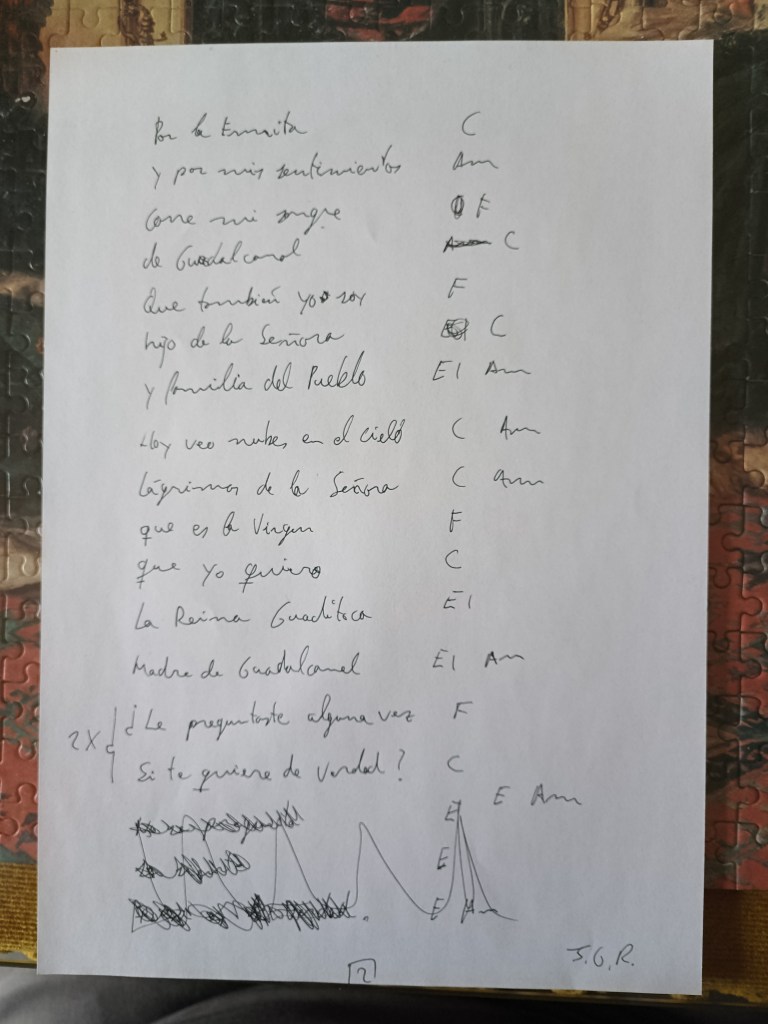 Por la Ermita C
y por mis sentimientos Am
corre mi sangre F
de Guadalcanal C
Que también yo soy F
hijo de la Señora C
y familia del Pueblo E Am
Hoy veo nubes en el cielo C Am
Lágrimas de la Señora C Am
que es la Virgen F
que yo quiero C
La Reina Guaditoca E
Madre de Guadalcanal E Am
2X { ¿Le preguntaste alguna vez F
Si te quiere de verdad? C
E Am
E
E
E Am
J.G.R.
2